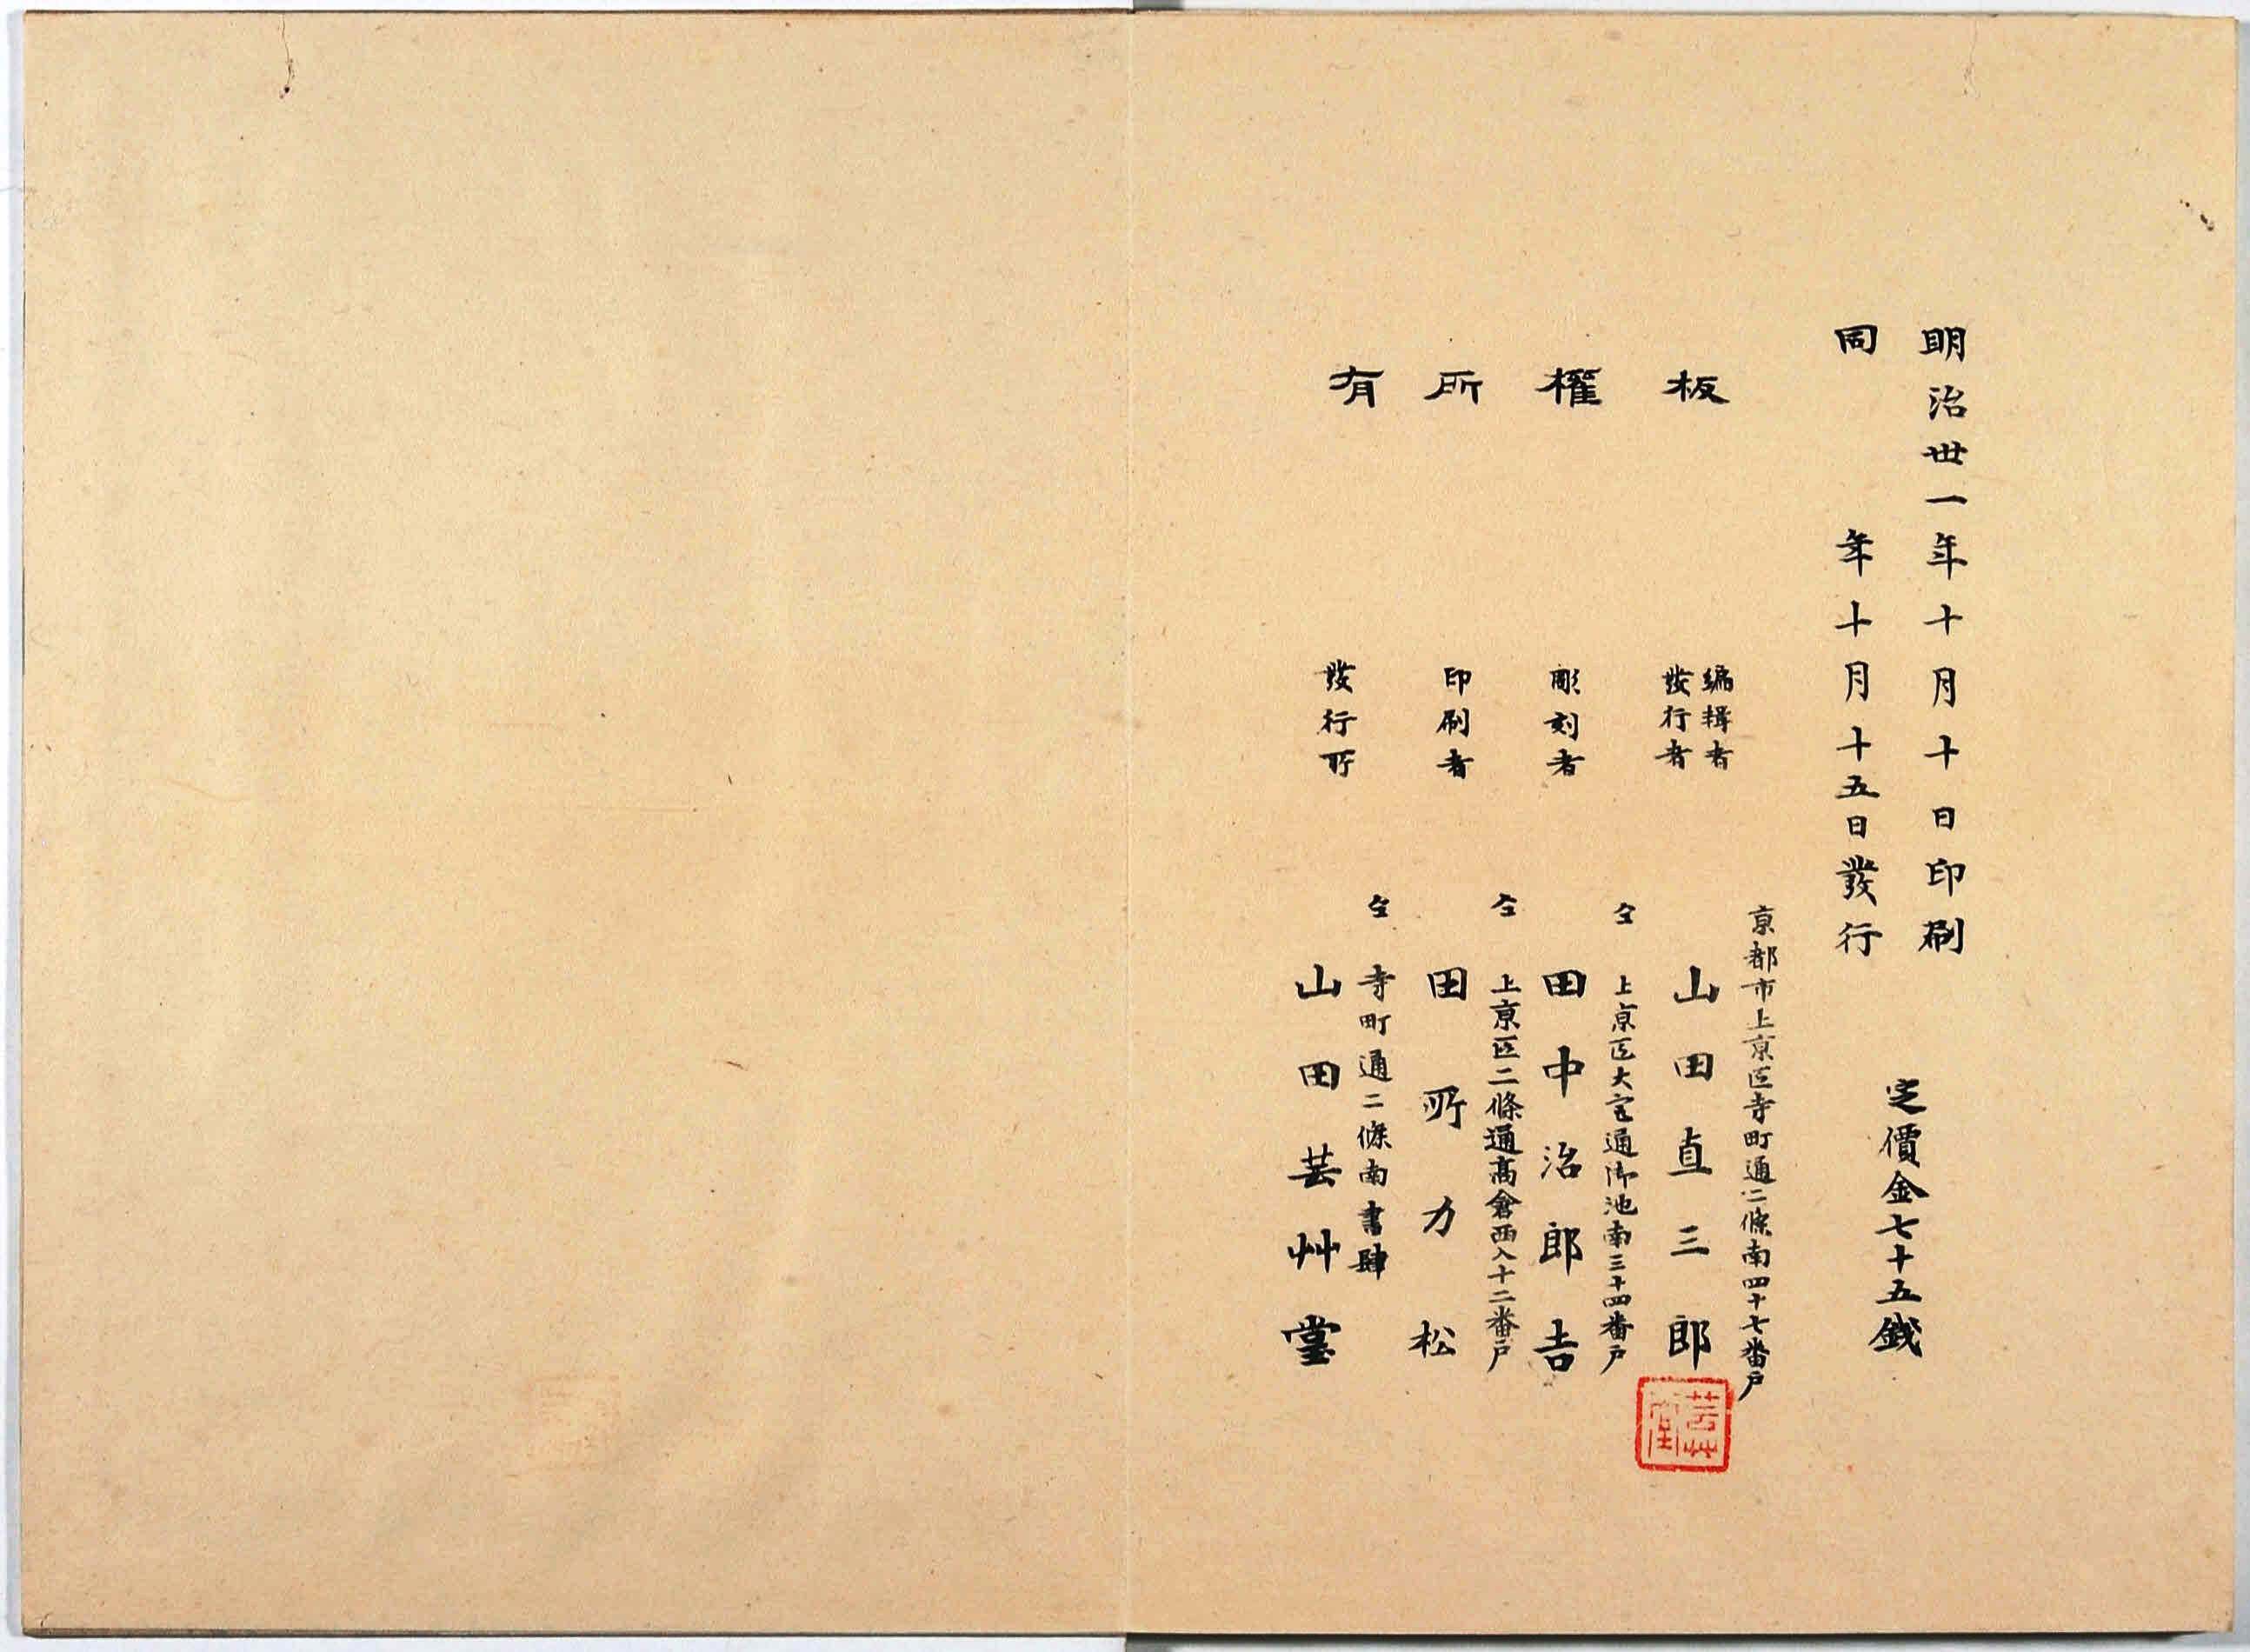 明治丗一年十月十日印刷
同年十月十五日發行
定價金七十五錢
板權所有
京都市上京區寺町通二條南四十七番戸
編輯者
發行者
山田直三郎
芸艸堂
仝上京區大宮通御池南三十四番戸
彫刻者
田中治郎吉
仝上京區二條通髙倉西入十二番戸
印刷者
田所力松
仝寺町通二條南書肆
發行所
山田芸艸堂